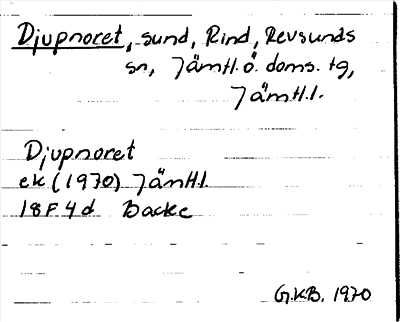 Djupnoret, sund, Rind, Revsunds
sn, Jämtl.ö. doms. tg,
Jämtl.l.
Djupnoret
ek (1970) Jämtl.l.
18F4d Backe
G.KB. 1970